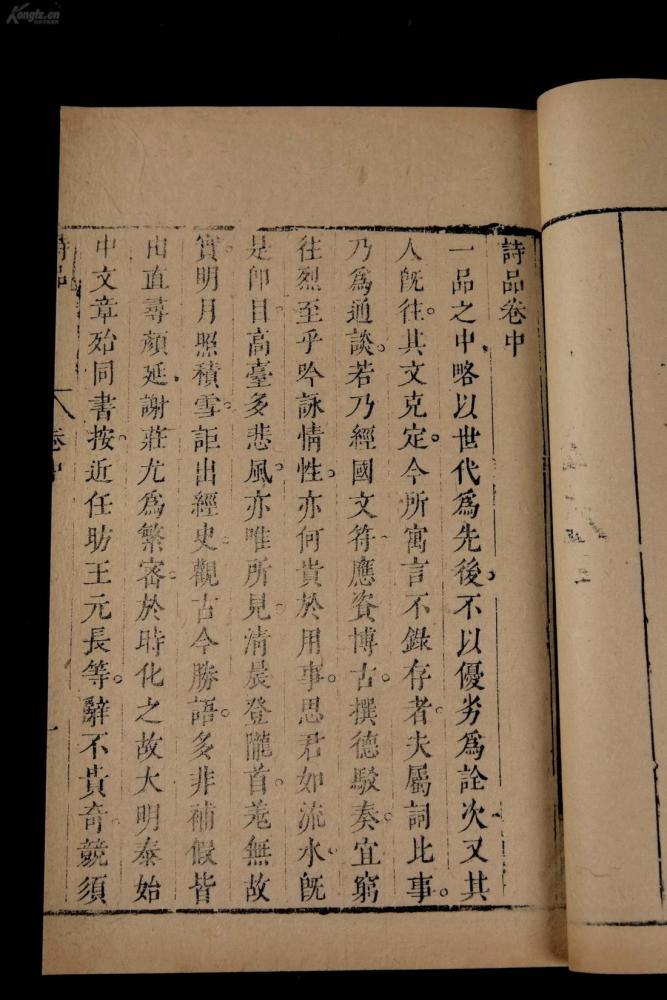 詩品卷中
一品之中略以世代爲先後不以優劣爲詮次又其
人旣往。其文克定。今所寓言不錄存者夫屬詞比事。
乃爲通談。若乃經國文符應資博古。撰德駁奏。宜窮
往烈至乎吟詠情性。亦何貴於用事。思君如流水。旣
是卽目。高臺多悲風。亦唯所見淸晨登隴首。羌無故
實。明月照積雪。詎出經史。觀古今勝語。多非補假皆
由直尋顏延謝莊尤爲繁密。於時化之故大明泰始
中文章殆同書按。近任昉王元長等。辭不貴奇。競須
詩品
卷中
一
Kongfz.cn